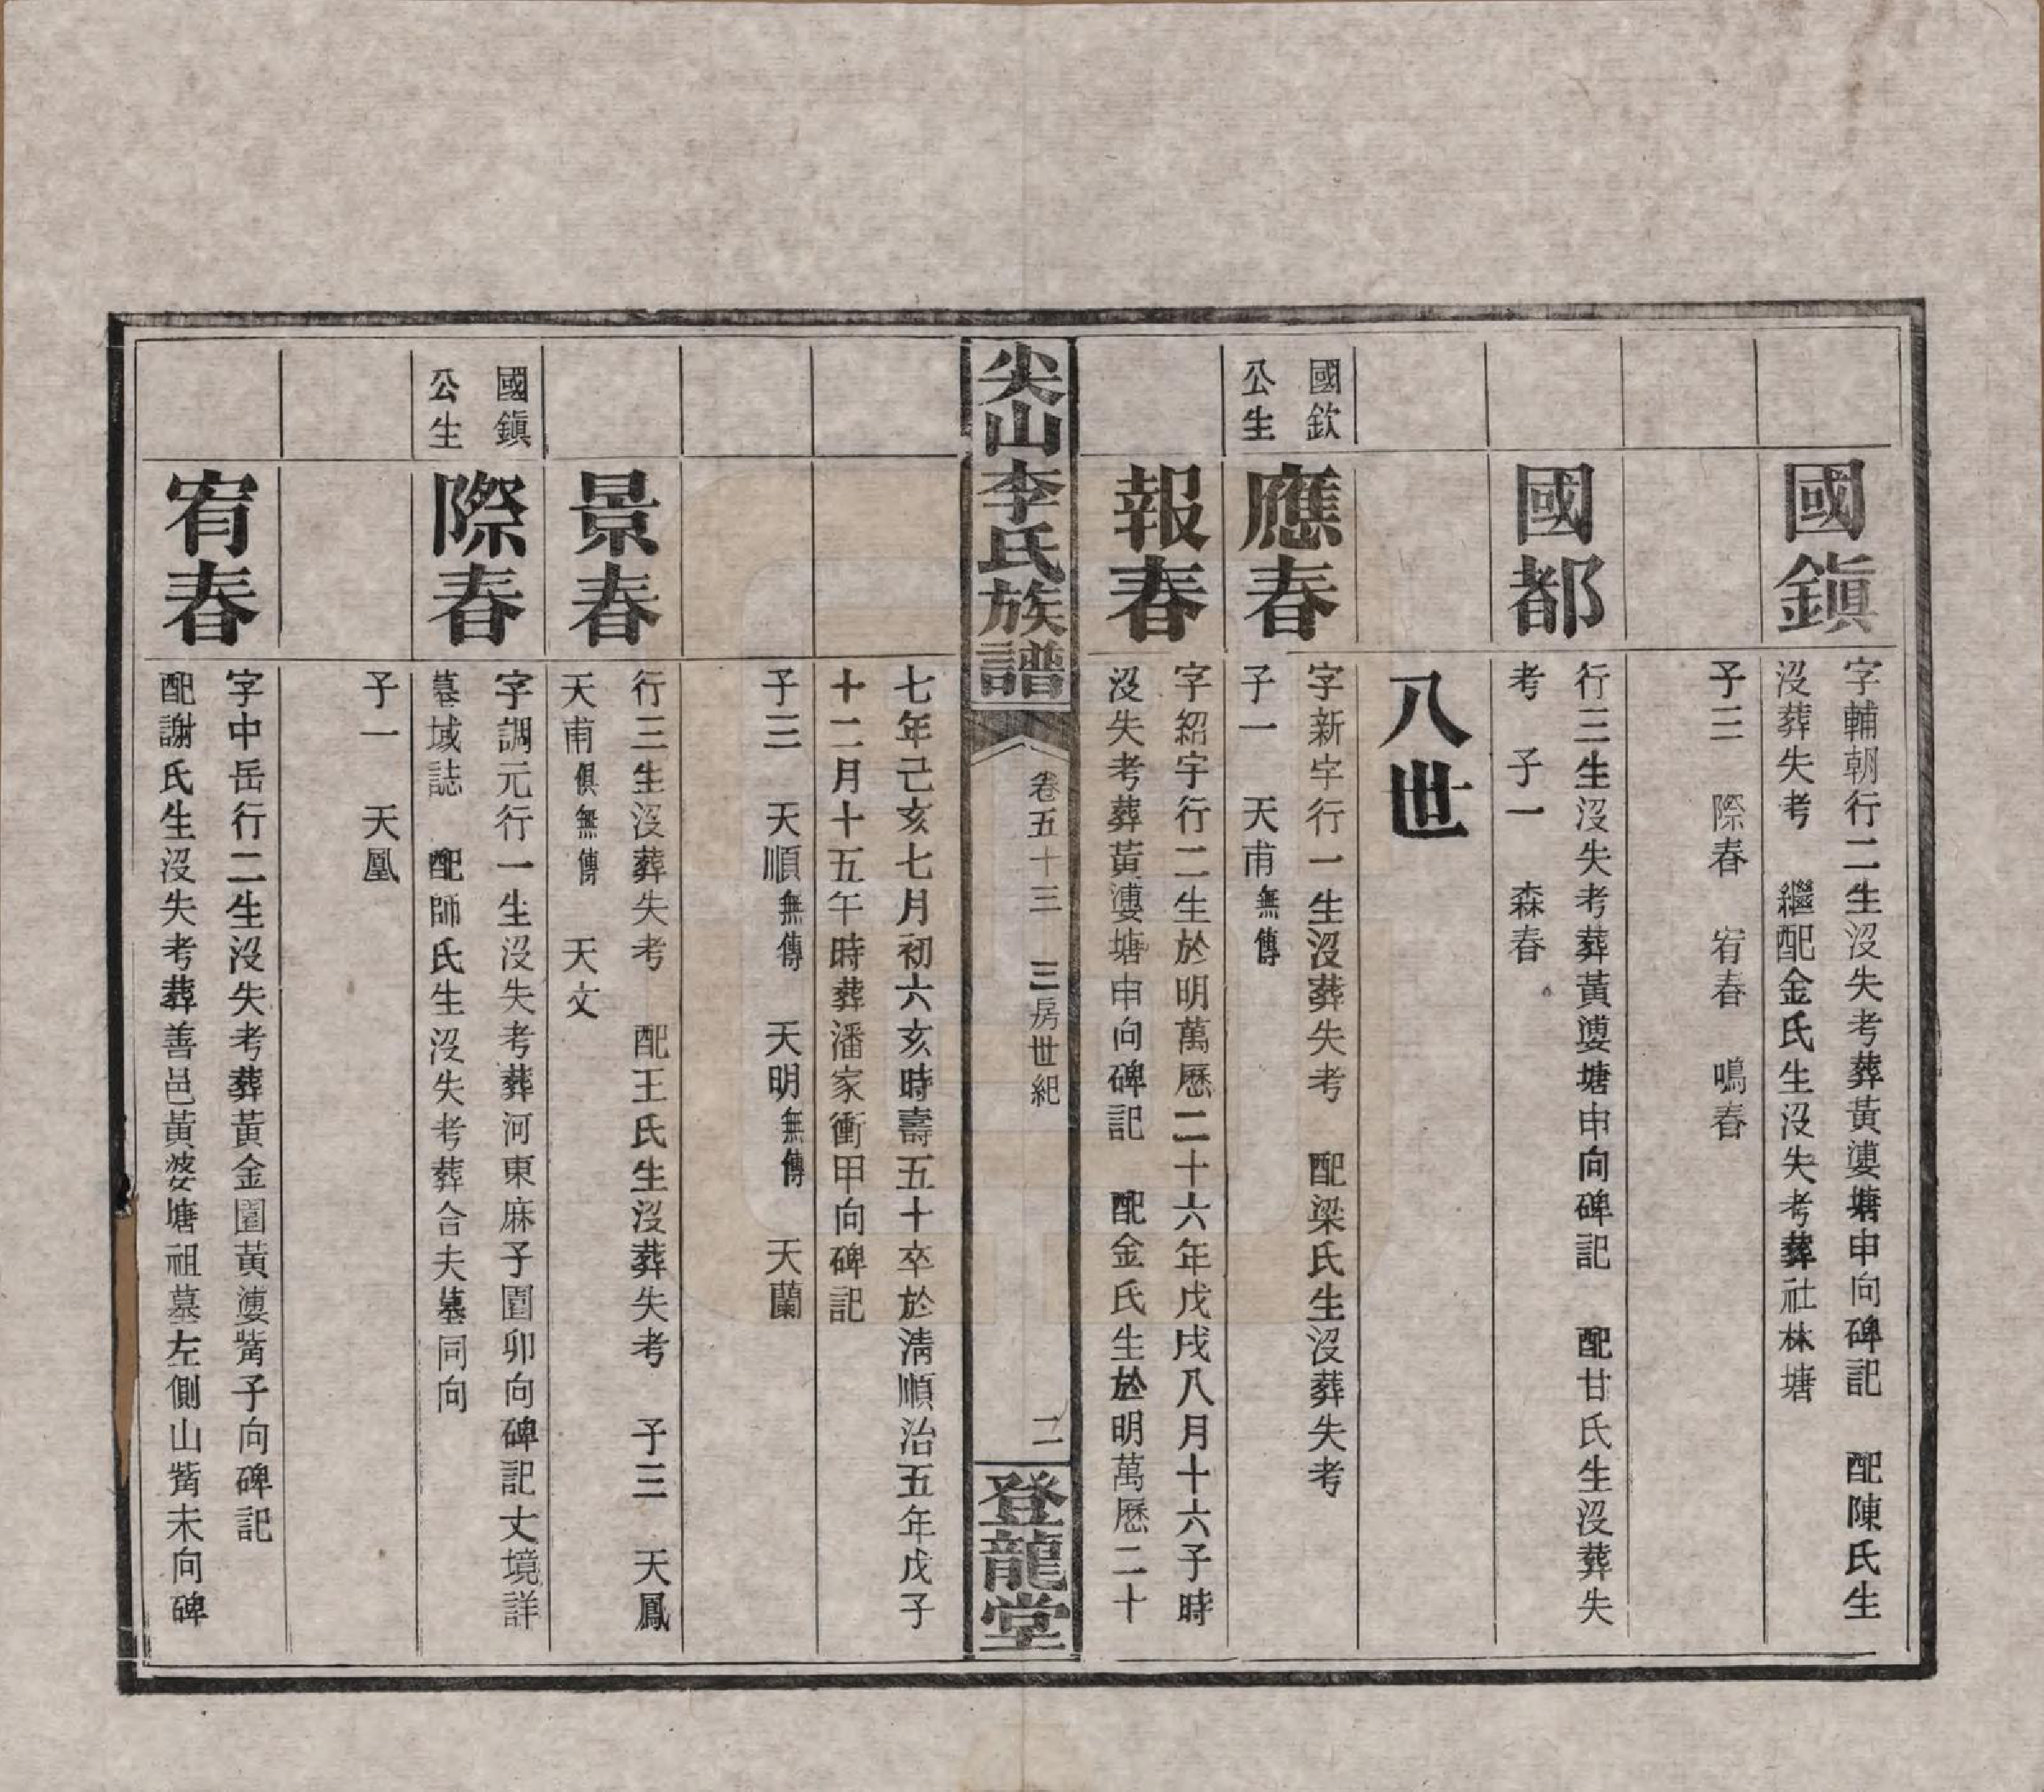 國鎭
字輔朝行二生沒失考葬黃漊塘申向碑記 配陳氏生
沒葬失考 繼配金氏生沒失考葬社林塘
子三 際春 宥春 鳴春
國都
行三生沒失考葬黃漊塘申向碑記 配甘氏生沒葬失
考 子一 森春
八世
國欽
公生
應春
字新字行一生沒葬失考 配梁氏生沒葬失考
子一 天甫無傳
報春
字紹字行二生於明萬曆二十六年戊戌八月十六子時
沒失考葬黃漊塘申向碑記 配金氏生於明萬曆二十
尖山李氏族譜
卷五十三 三房世紀
二
登龍堂
七年己亥七月初六亥時壽五十卒於淸順治五年戊子
十二月十五午時葬潘家衝甲向碑記
子三 天順無傳 天明無傳 天蘭
景春
行三生沒葬失考 配王氏生沒葬失考 子三 天鳳
天甫俱無傳 天文
國鎭
公生
際春
字調元行一生沒失考葬河東麻子園卯向碑記丈境詳
墓域誌 配師氏生沒失考葬合夫墓同向
子一 天凰
宥春
字中岳行二生沒失考葬黃金園黃漊嘴子向碑記
配謝氏生沒失考葬善邑黃婆塘祖墓左側山嘴未向碑